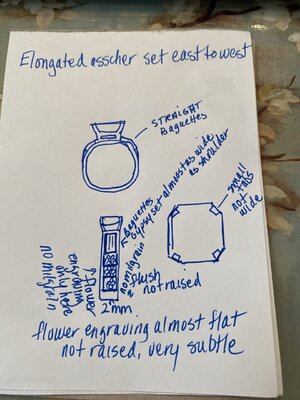 Elongated asscher set east to west
STRAIGHT
Baguettes
small
tabs
not
wide
Baguettes
Gypsy set almost as wide
as shoulder
no milgrain
flush
not raised
flower
engraving
only here
no milgrain
2mm
flower engraving almost flat
not raised, very subtle